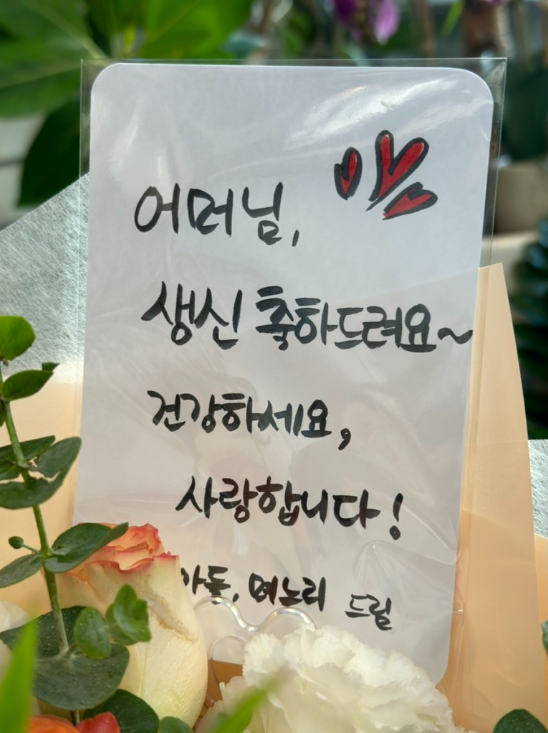 어머님,
생신 축하드려요~
건강하세요,
사랑합니다!
아들, 며느리 드림